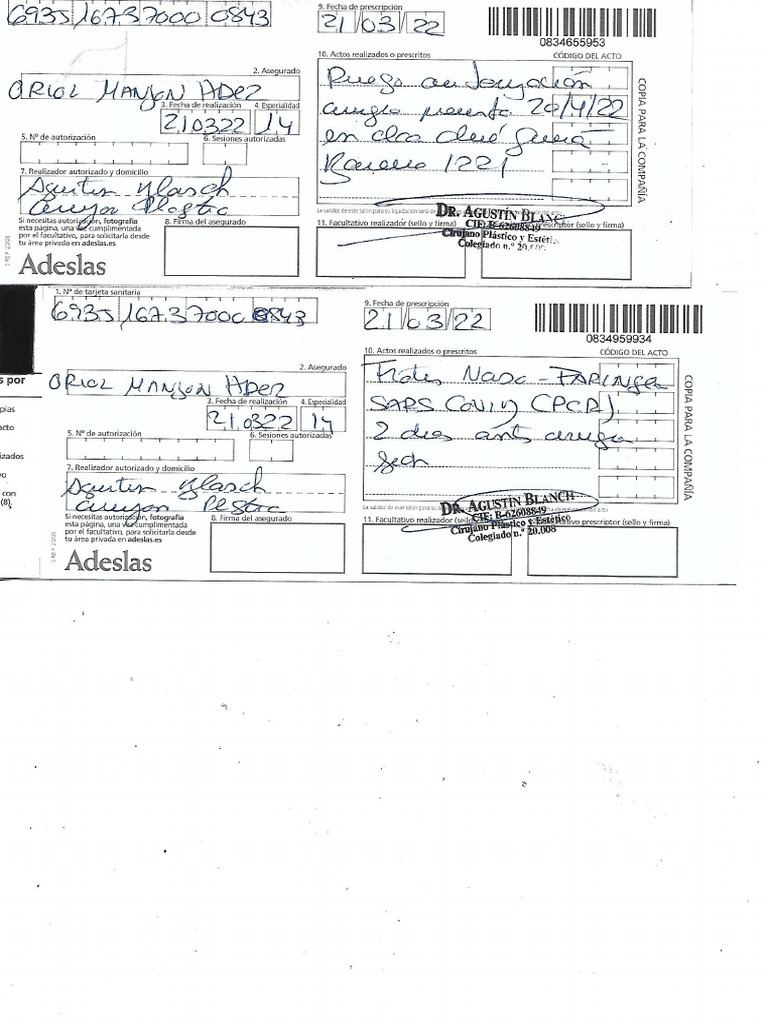 6935 167 37000 0843
9. Fecha de prescripción
21 03 22
0834655953
10. Actos realizados o prescritos
CÓDIGO DEL ACTO
2. Asegurado
ORIOL MANJON
3. Fecha de realización
4. Especialidad
210322
14
5. Nº de autorización
6. Sesiones autorizadas
7. Realizador autorizado y domicilio
Agustin Blasch
Ruego autorización
cirugia 20/4/22
en
1221
COPIA PARA LA COMPAÑÍA
DR. AGUSTÍN BLANCH
CIF: B-62608849
Cirujano Plástico y Estétic
Colegiado n.º 20.008
La validez de este talón para su liquidación será de
Si necesitas autorización, fotografía
esta página, una vez cumplimentada
por el facultativo, para solicitarla desde
tu área privada en adeslas.es
8. Firma del asegurado
11. Facultativo realizador (sello y firma)
prescriptor (sello y firma)
Adeslas
1. Nº de tarjeta sanitaria
6935 167 37000 0843
9. Fecha de prescripción
21 03 22
0834959934
10. Actos realizados o prescritos
CÓDIGO DEL ACTO
2. Asegurado
ORIOL MANJON
3. Fecha de realización
4. Especialidad
210322
14
5. Nº de autorización
6. Sesiones autorizadas
7. Realizador autorizado y domicilio
Agustin Blasch
Frotis Naso - FARINGEO
SARS COVID (PCR)
2 dias antes cirugia
COPIA PARA LA COMPAÑÍA
DR. AGUSTÍN BLANCH
CIF: B-62608849
Cirujano Plástico y Estético
Colegiado n.º 20.008
La validez de este talón para su
Si necesitas autorización, fotografía
esta página, una vez cumplimentada
por el facultativo, para solicitarla desde
tu área privada en adeslas.es
8. Firma del asegurado
11. Facultativo realizador (sello
prescriptor (sello y firma)
Adeslas
s por
pias
acto
izados
o
con
(8).